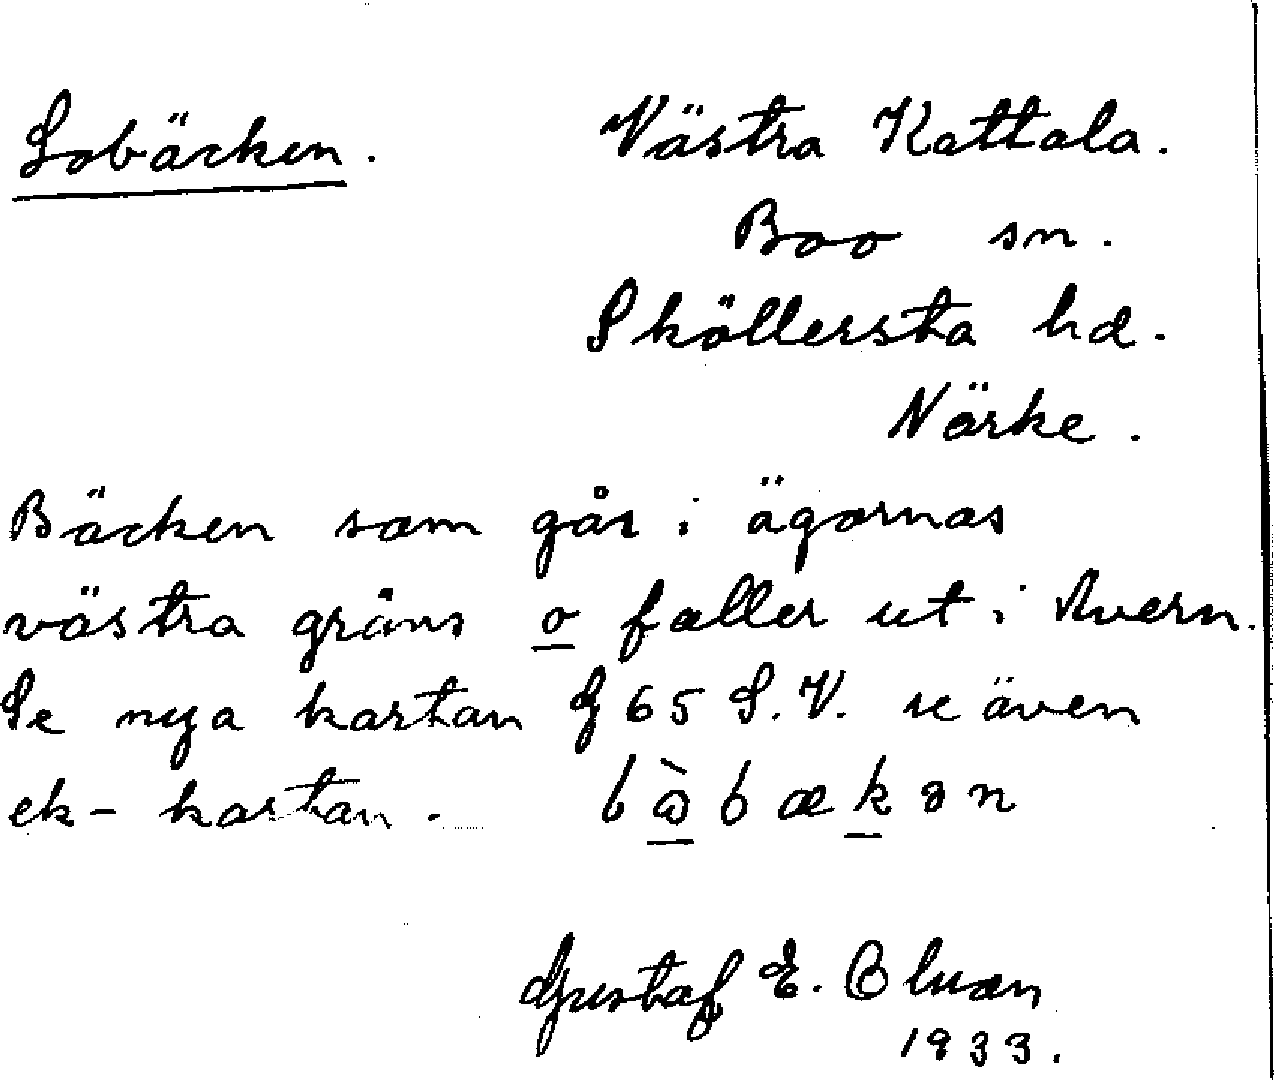 Lobäcken. Västra Kattala.
Boo sn.
Sköllersta hd.
Närke.
Bäcken som går i ägornas
västra gräns o faller ut i Avern.
Se nya kartan G 65 S.V. se även
ek-kartan.
Gustaf E.
1933.